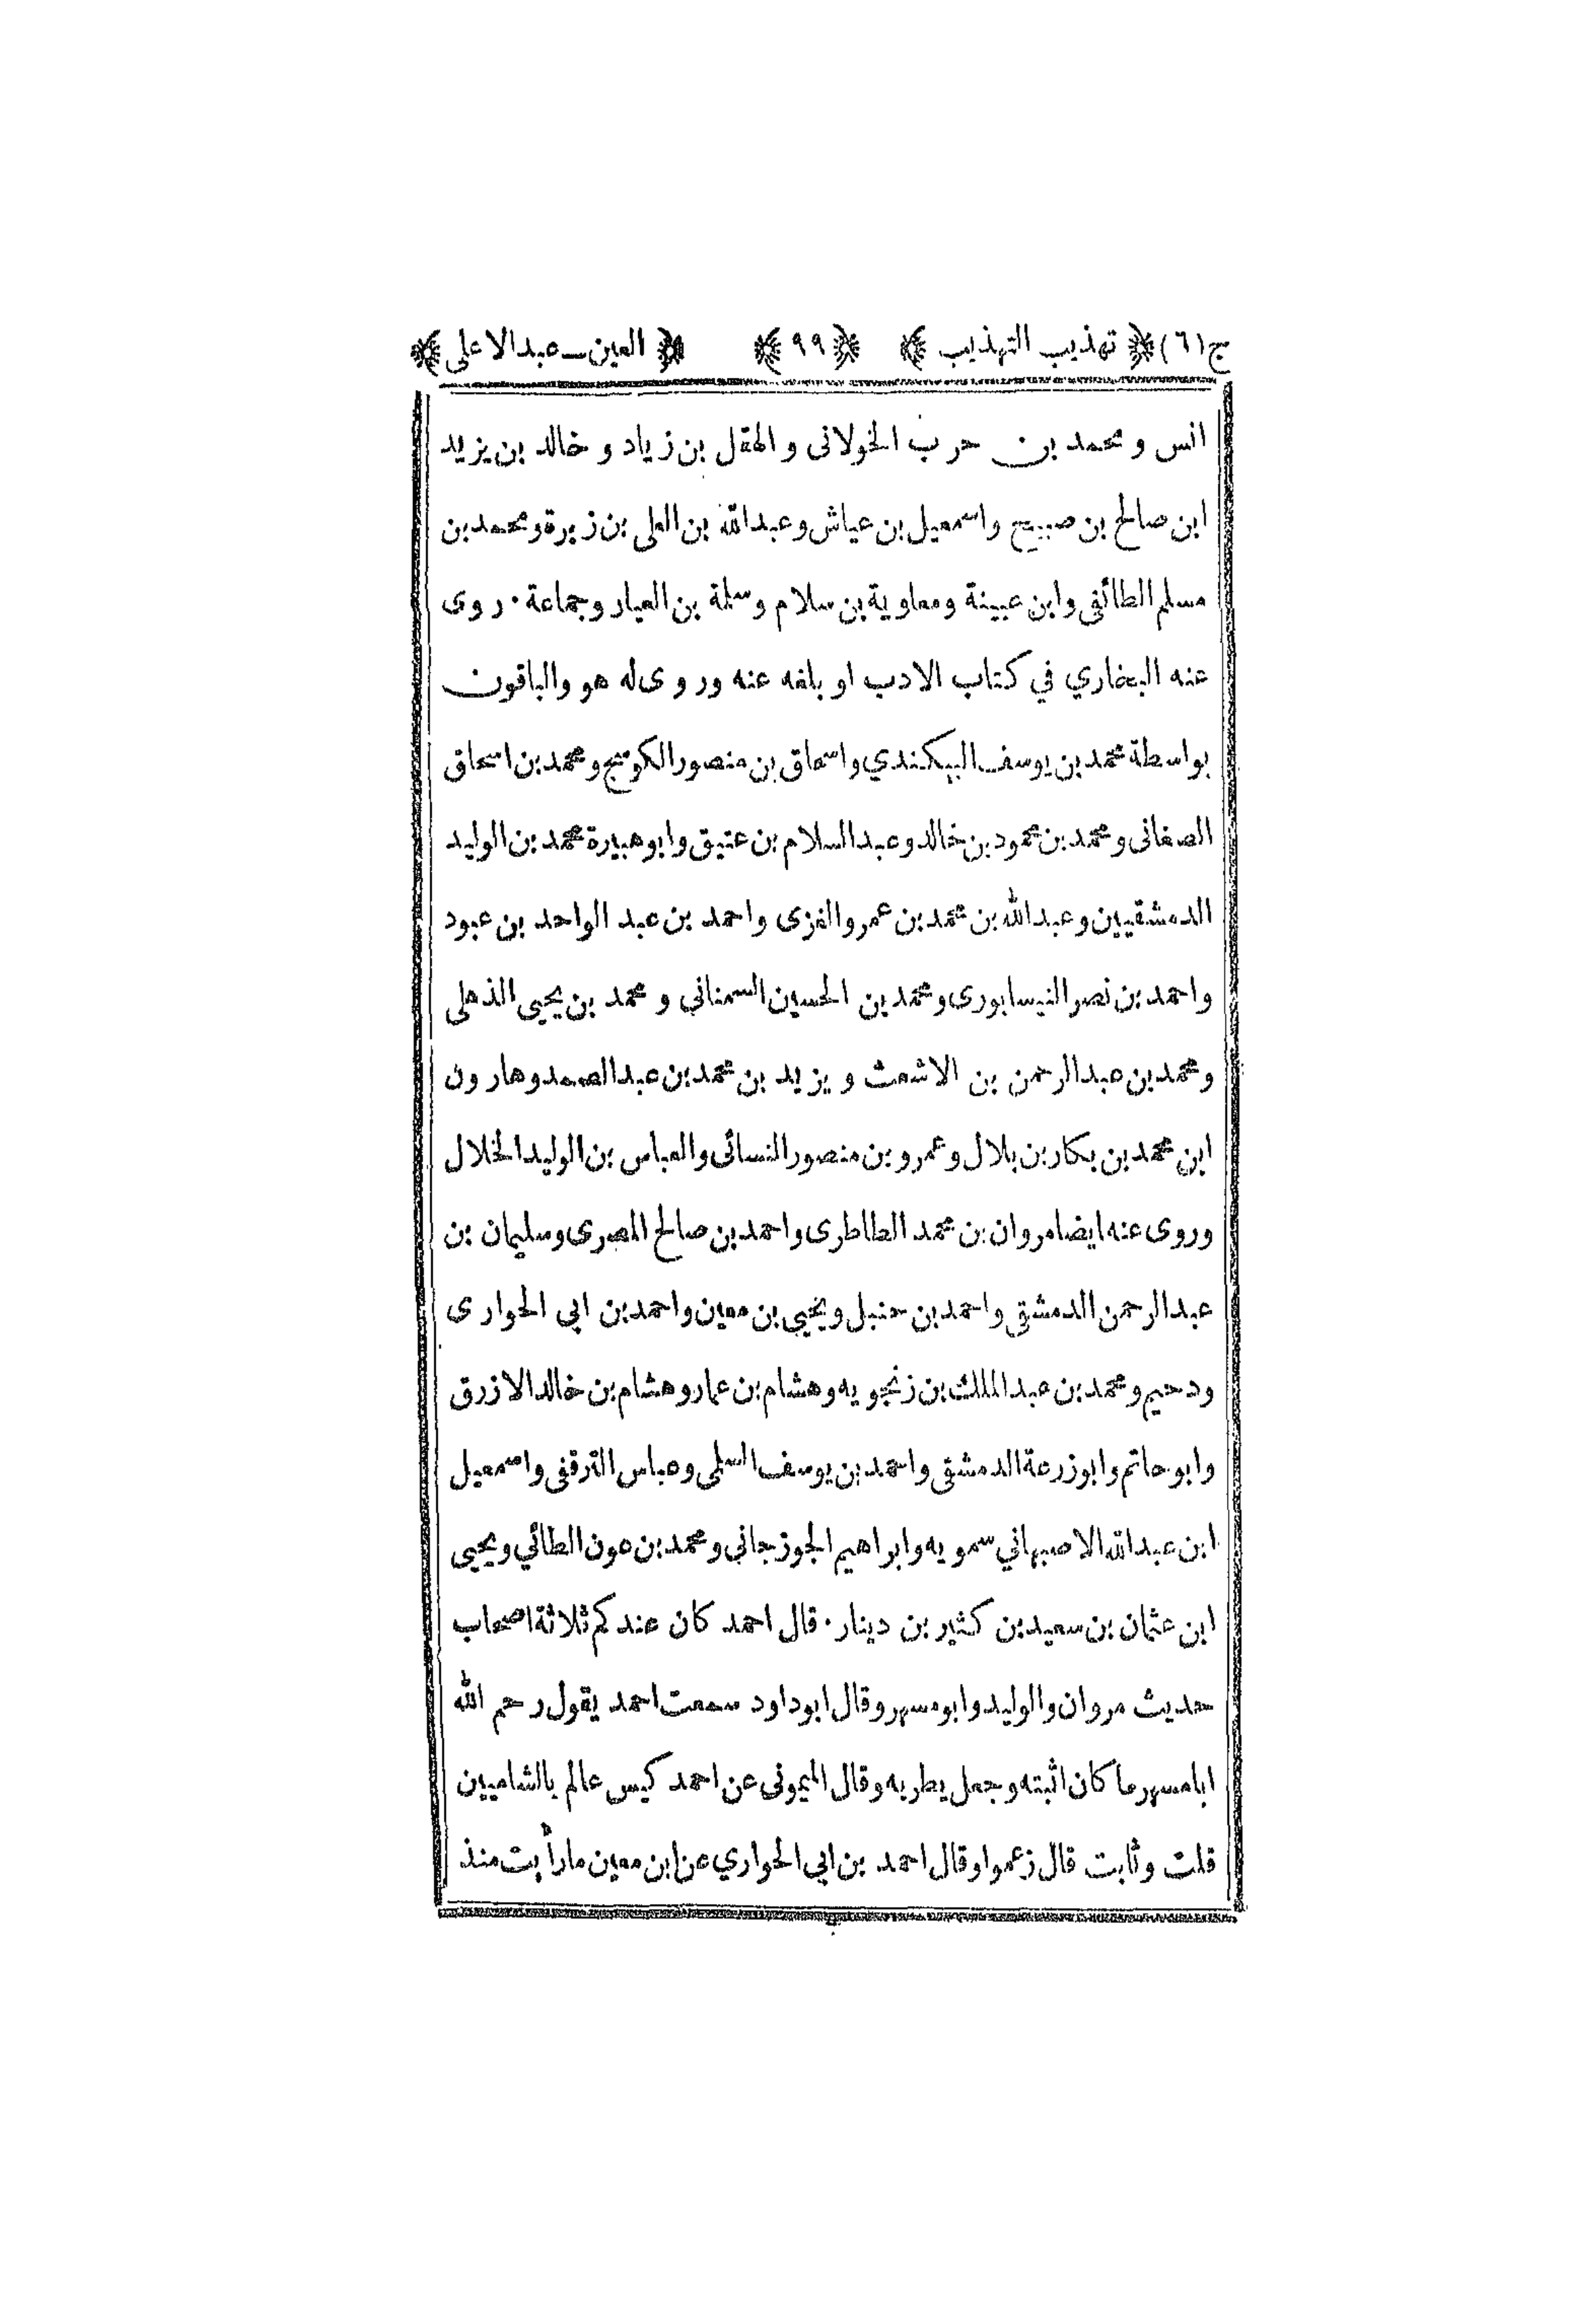 ج(٦) ﴿تهذيب التهذيب﴾ ﴿٩٩﴾ ﴿العين ــ عبد الاعلى﴾
انس و محمد بن حرب الخولانى و الهقل بن زياد و خالد بن يزيد
ابن صالح بن صبيح واسمعيل بن عياش وعبد الله بن العلى بن زبرة ومحمد بن
مسلم الطائفى وابن عيينة ومعاوية بن سلام وسلمة بن العيار وجماعة · روى
عنه البخاري في كتاب الادب او بلغه عنه وروى له هو والباقون
بواسطة محمد بن يوسف البيكندي واسحاق بن منصور الكوسج ومحمد بن اسحاق
الصغانى ومحمد بن محمود بن خالد وعبد السلام بن عتيق وابو هبيرة محمد بن الوليد
الدمشقيين وعبد الله بن محمد بن عمرو الغزى واحمد بن عبد الواحد بن عبود
واحمد بن نصر النيسابورى ومحمد بن الحسين السمنانى و محمد بن يحيى الذهلى
ومحمد بن عبد الرحمن بن الاشعث و يزيد بن محمد بن عبد الصمد وهارون
ابن محمد بن بكار بن بلال وعمرو بن منصور النسائى والعباس بن الوليد الخلال
وروى عنه ايضا مروان بن محمد الطاطرى واحمد بن صالح المصرى وسليمان بن
عبد الرحمن الدمشقى واحمد بن حنبل ويحيى بن معين واحمد بن ابى الحوارى
ودحيم ومحمد بن عبد الملك بن زنجويه وهشام بن عمار وهشام بن خالد الازرق
وابو حاتم وابو زرعة الدمشقى واحمد بن يوسف السلمى وعباس الترقفى واسمعيل
ابن عبد الله الاصبهاني سمويه وابراهيم الجوزجانى ومحمد بن عون الطائي ويحيى
ابن عثمان بن سعيد بن كثير بن دينار · قال احمد كان عندكم ثلاثة اصحاب
حديث مروان والوليد وابو مسهر وقال ابو داود سمعت احمد يقول رحم الله
ابا مسهر ما كان اثبته وجعل يطريه وقال الميمونى عن احمد كيس عالم بالشاميين
قلت وثابت قال زعموا وقال احمد بن ابي الحواري عن ابن معين ما رأيت منذ